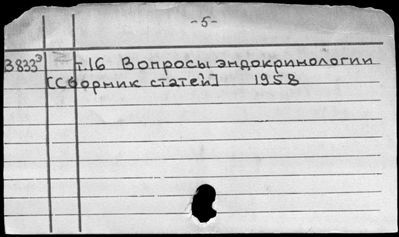 -5-
В833э т.16 Вопросы эндокринологии
[Сборник статей] 1958